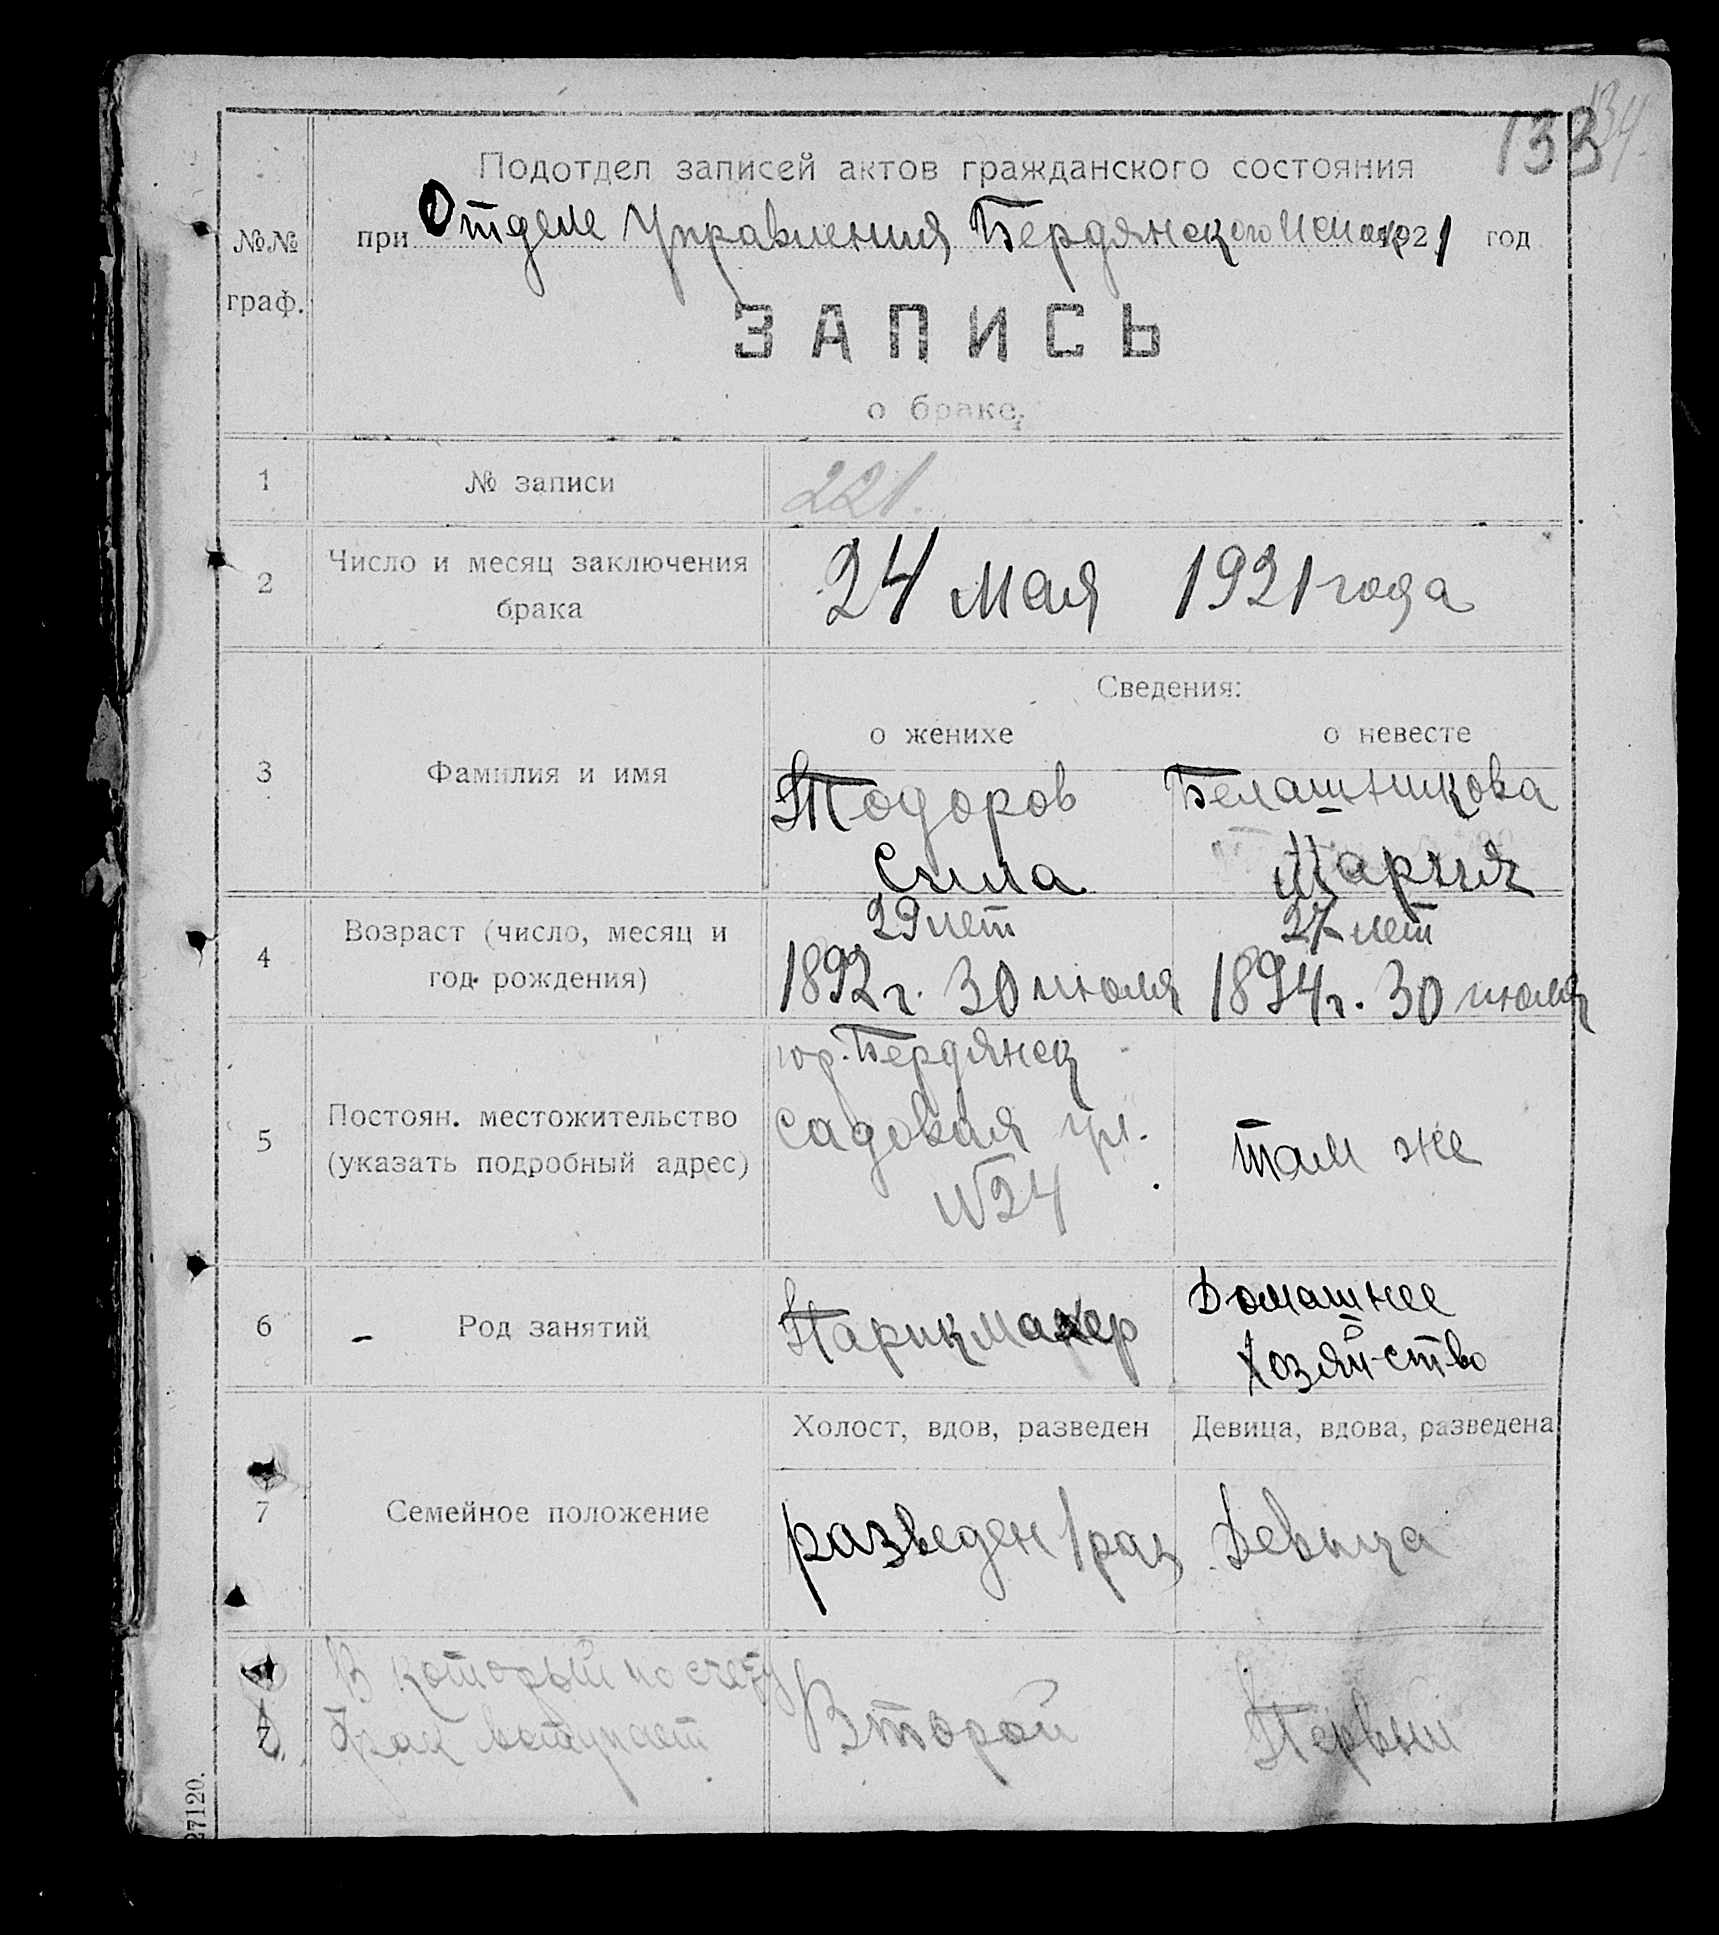 133
134
Подотдел записей актов гражданского состояния
№№ граф.
при Отделе Управления Бердянского 1921 год
ЗАПИСЬ
о браке.
1 № записи 221.
2 Число и месяц заключения брака
24 мая 1921 года
Сведения:
о женихе о невесте
3 Фамилия и имя
Тодоров Белашникова
Сила Мария
4 Возраст (число, месяц и год рождения)
29 лет 27 лет
1892 г. 30 июля 1894 г. 30 июля
5 Постоян. местожительство (указать подробный адрес)
гор. Бердянск
Садовая ул.
№ 24
там же
6 Род занятий
Парикмахер
Домашнее
хозяйство
Холост, вдов, разведен Девица, вдова, разведена
7 Семейное положение
разведен 1 раз Девица
В который по счету
брак вступает
Второй Первый
27120.